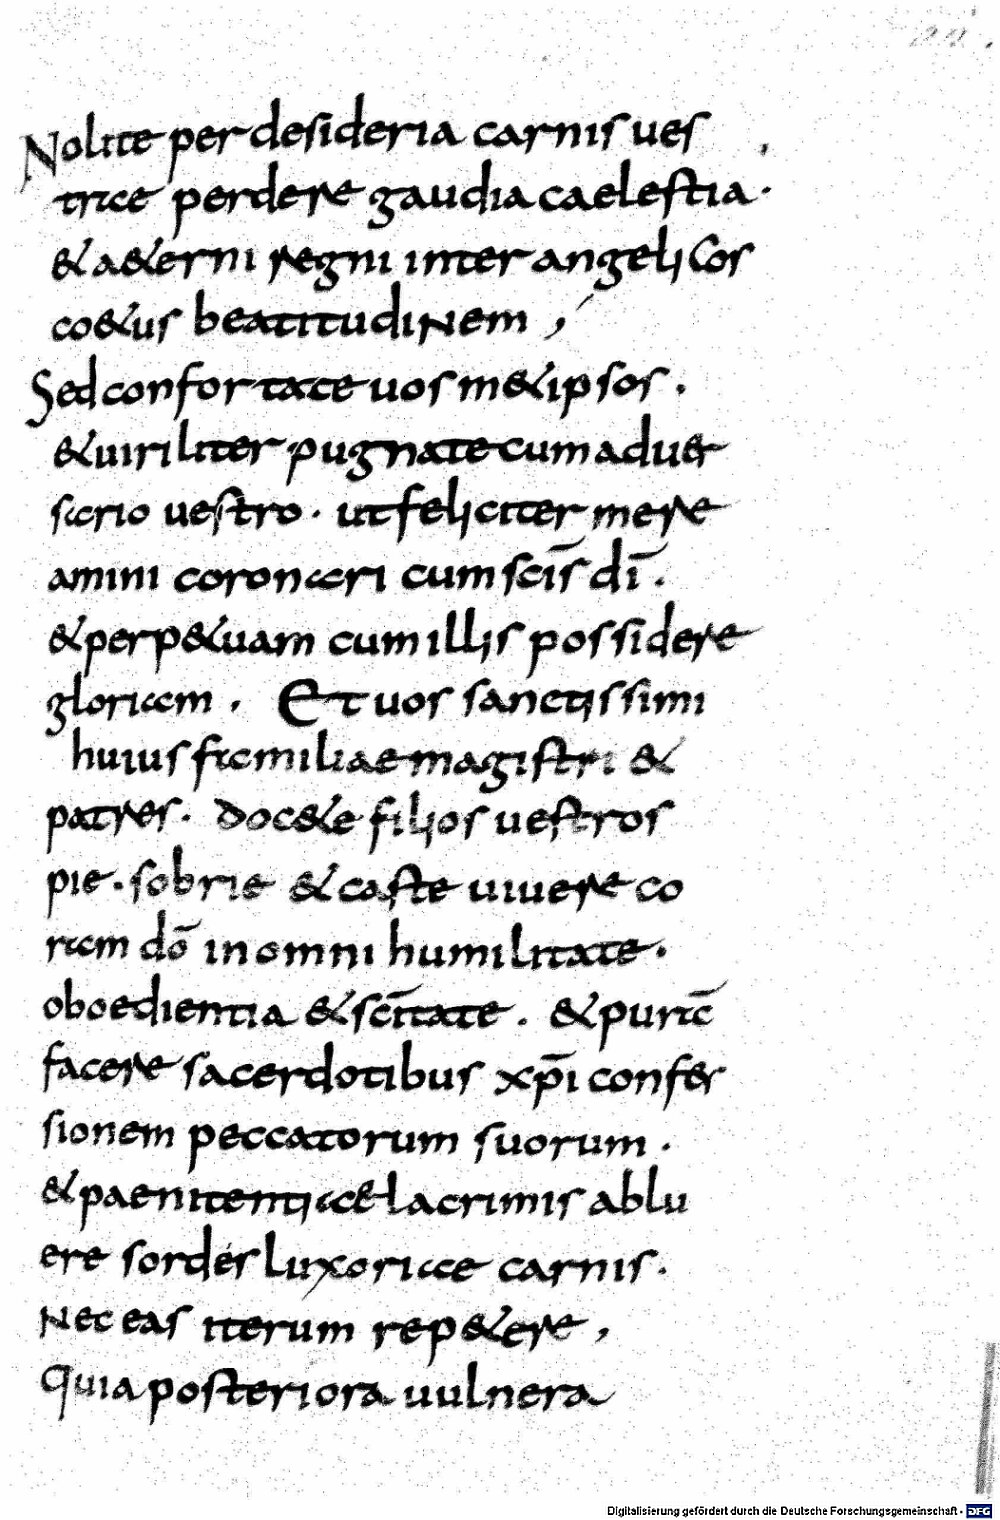 24.
Nolite per desideria carnis ues
trae perdere gaudia caelestia·
& a&erni regni inter angelicos
co&us beatitudinem,
Sed confortate uos m&ipsos.
& uiriliter pugnate cum aduer
sario uestro· ut feliciter mere
amini coronari cum scīs dī.
& perp&uam cum illis possidere
gloriam. Et uos sanctissimi
huius familiae magistri &
patres. doc&e filios uestros
pie. sobrie & caste uiuere co
ram dō in omni humilitate·
oboedientia & scītate. & purā
facere sacerdotibus xp̄i confes
sionem peccatorum suorum.
& paenitentiae lacrimis ablu
ere sordes luxoriae carnis.
Nec eas iterum rep&ere,
Quia posteriora uulnera
Digitalisierung gefördert durch die Deutsche Forschungsgemeinschaft - DFG